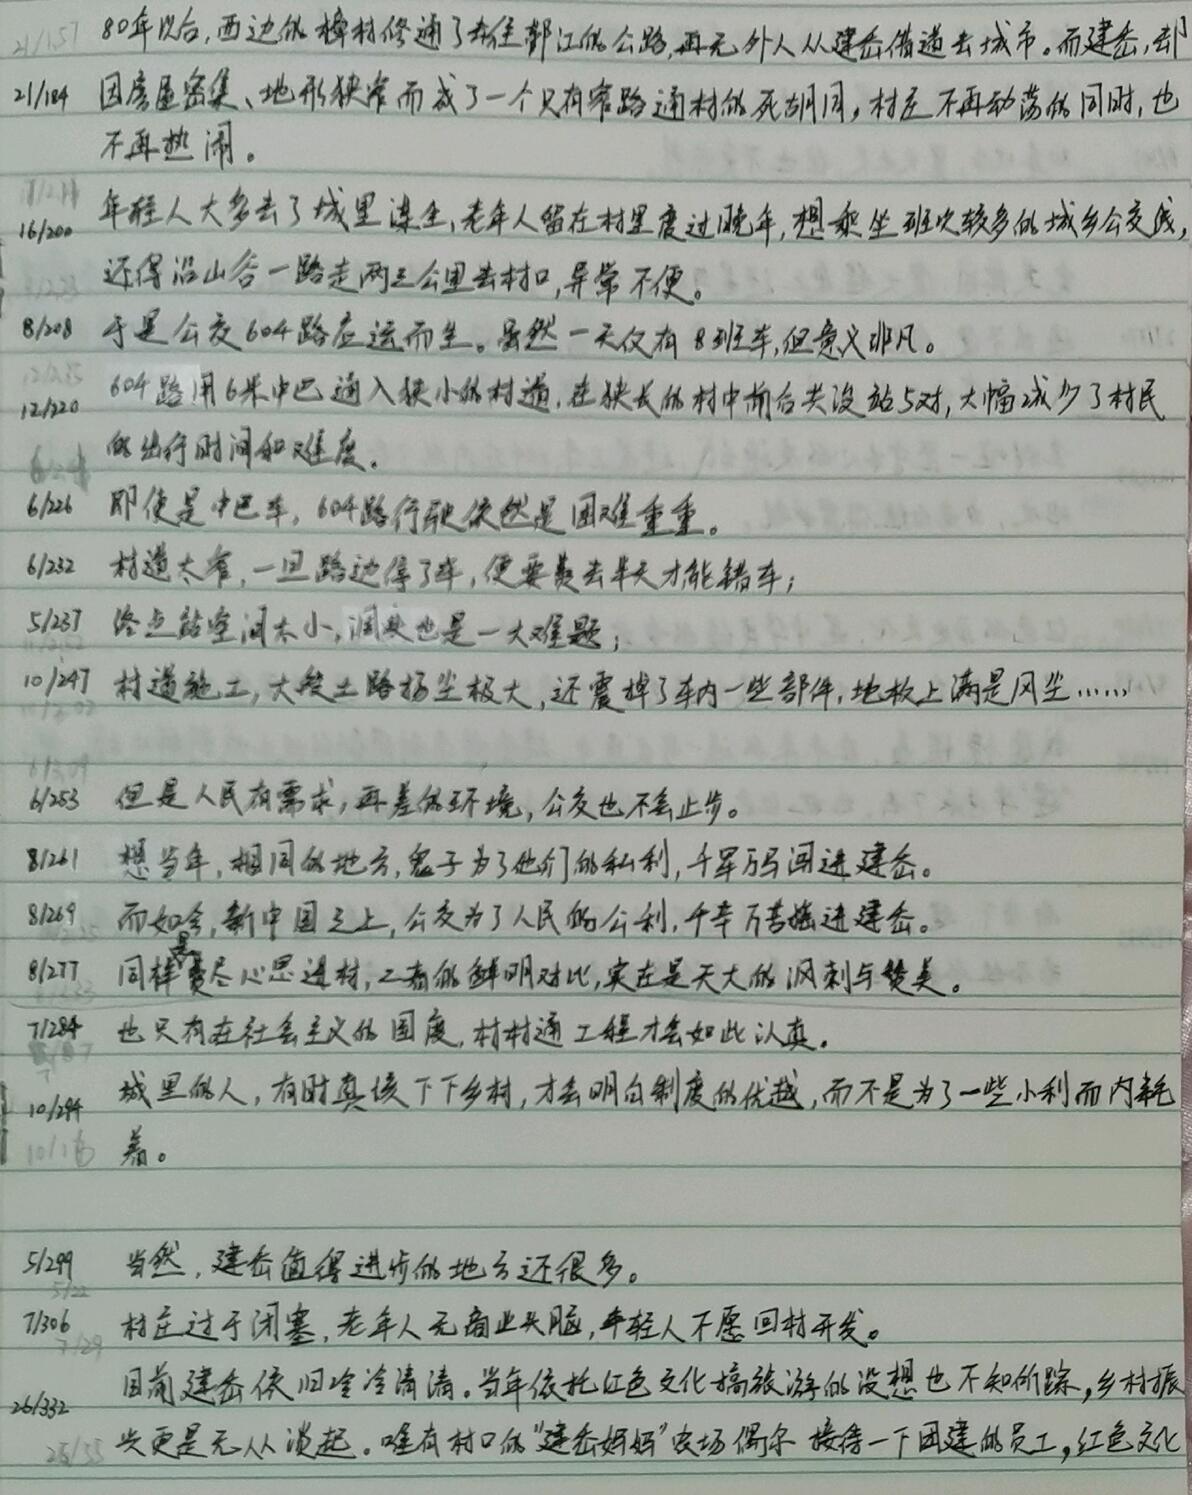 21/157 80年以后,西边的樟村修通了去往鄞江的公路,再无外人从建岙借道去城市。而建岙,却
21/184 因房屋密集、地形狭窄而成了一个只有窄路通村的死胡同,村庄不再动荡的同时,也
不再热闹。
16/200 年轻人大多去了城里谋生,老年人留在村里度过晚年,想乘坐班次较多的城乡公交线,
还得沿山谷一路走两三公里去村口,异常不便。
8/208 于是公交604路应运而生。虽然一天仅有8班车,但意义非凡。
12/220 604路用6米中巴通入狭小的村道,在狭长的村中前后共设站5对,大幅减少了村民
的出行时间和难度。
6/226 即使是中巴车,604路行驶依然是困难重重。
6/232 村道太窄,一旦路边停了车,便要费去半天才能错车;
5/237 终点站空间太小,调头也是一大难题;
10/247 村道施工,大段土路扬尘极大,还震掉了车内一些部件,地板上满是风尘……
6/253 但是人民有需求,再差的环境,公交也不会止步。
8/261 想当年,相同的地方,鬼子为了他们的私利,千军万马闯进建岙。
8/269 而如今,新中国之上,公交为了人民的公利,千辛万苦摇进建岙。
8/277 同样是费尽心思进村,二者的鲜明对比,实在是天大的讽刺与赞美。
7/284 也只有在社会主义的国度,村村通工程才会如此认真。
10/294 城里的人,有时真该下下乡村,才会明白制度的优越,而不是为了一些小利而内耗
着。
5/299 当然,建岙值得进步的地方还很多。
7/306 村庄过于闭塞,老年人无商业头脑,年轻人不愿回村开发。
26/332 目前建岙依旧冷冷清清。当年依托红色文化搞旅游的设想也不知所踪,乡村振
兴更是无从谈起。唯有村口的“建岙妈妈”农场偶尔接待一下团建的员工,红色文化